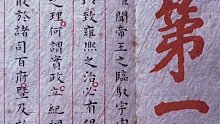 第一
聞帝王之臨馭宇
致雍熙之治必有
之理何謂實政立紀
於諸司百府暨及